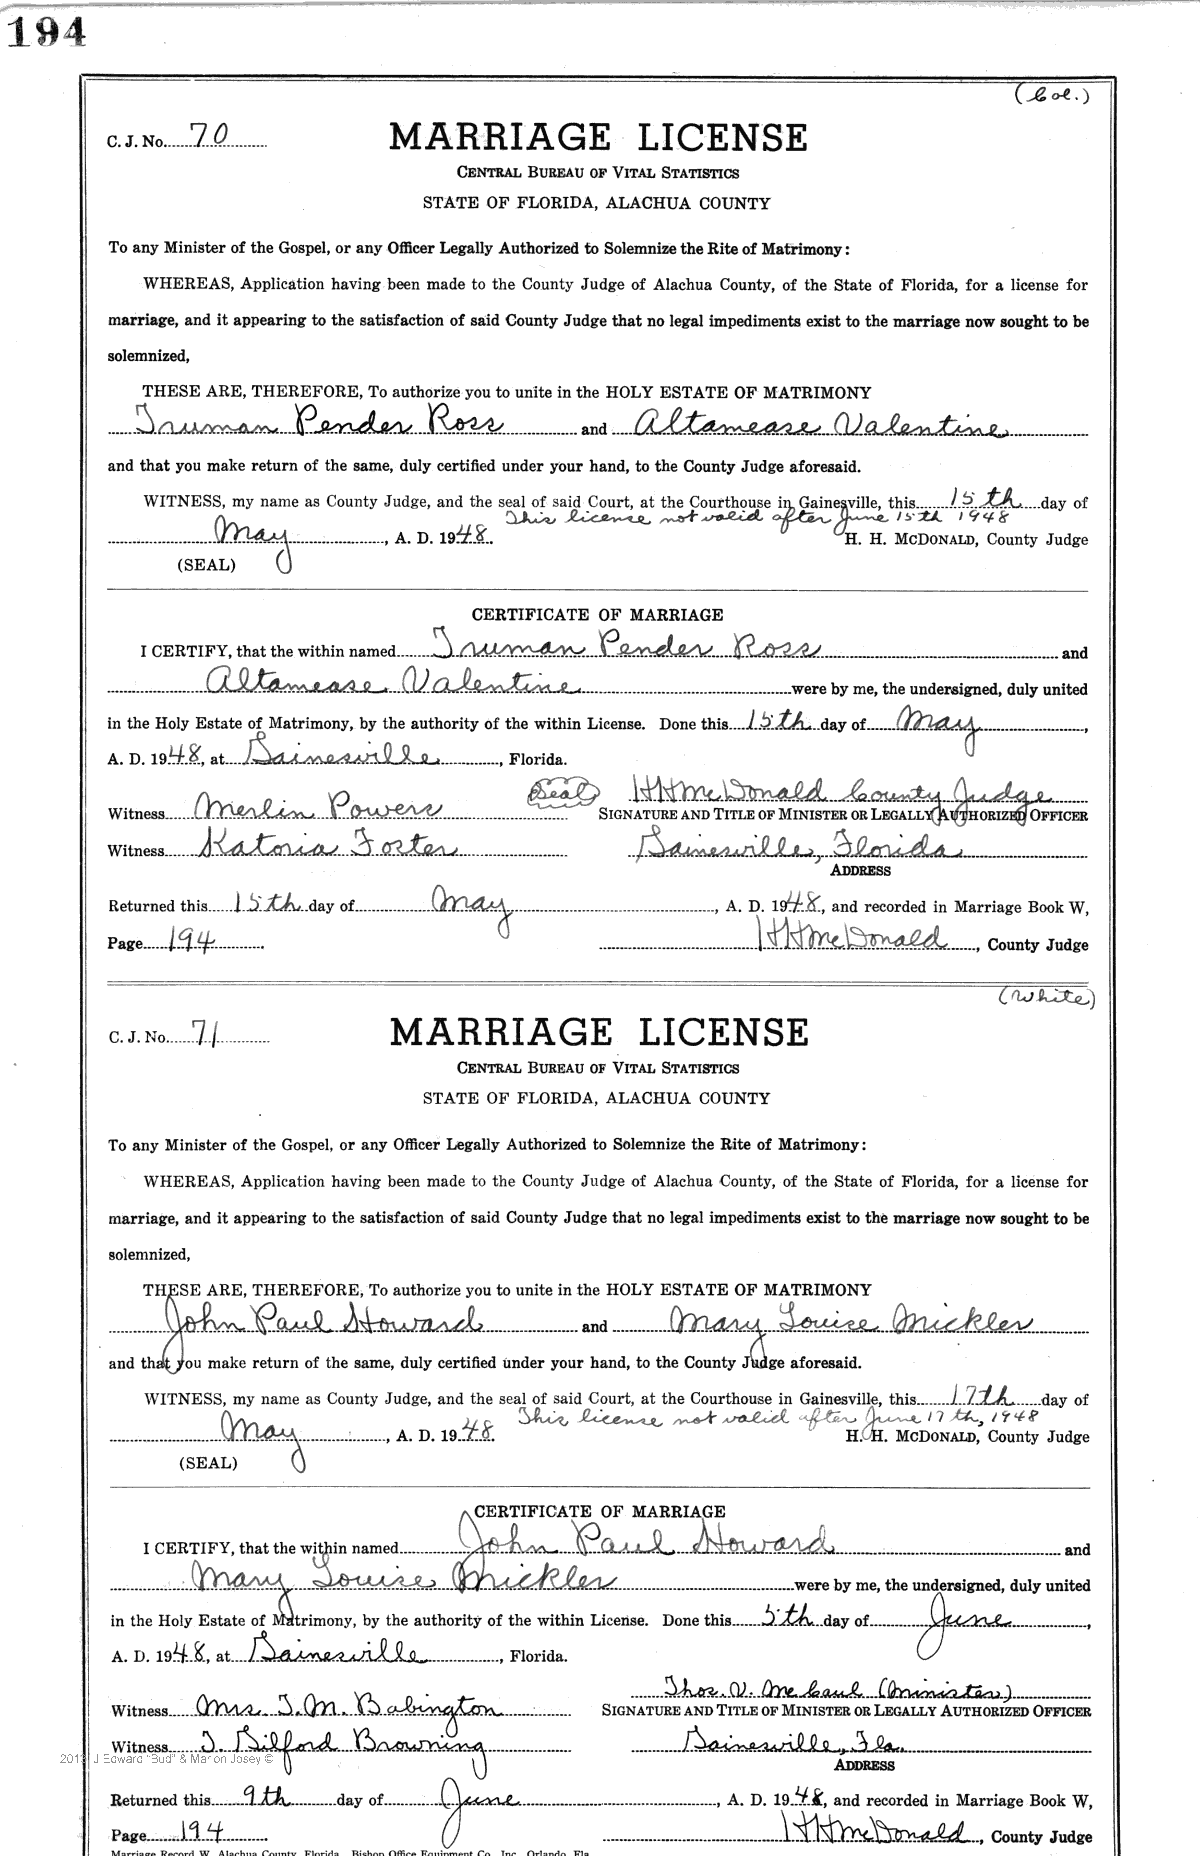 194
(Col.)
C. J. No. 70
MARRIAGE LICENSE
CENTRAL BUREAU OF VITAL STATISTICS
STATE OF FLORIDA, ALACHUA COUNTY
To any Minister of the Gospel, or any Officer Legally Authorized to Solemnize the Rite of Matrimony:
WHEREAS, Application having been made to the County Judge of Alachua County, of the State of Florida, for a license for
marriage, and it appearing to the satisfaction of said County Judge that no legal impediments exist to the marriage now sought to be
solemnized,
THESE ARE, THEREFORE, To authorize you to unite in the HOLY ESTATE OF MATRIMONY
Truman Pender Ross and Altamease Valentine
and that you make return of the same, duly certified under your hand, to the County Judge aforesaid.
WITNESS, my name as County Judge, and the seal of said Court, at the Courthouse in Gainesville, this 15th day of
This license not valid after June 15th 1948
May, A. D. 1948. H. H. MCDONALD, County Judge
(SEAL)
CERTIFICATE OF MARRIAGE
I CERTIFY, that the within named Truman Pender Ross and
Altamease Valentine were by me, the undersigned, duly united
in the Holy Estate of Matrimony, by the authority of the within License. Done this 15th day of May,
A. D. 1948, at Gainesville, Florida.
Seal HHMcDonald County Judge
Witness Merlin Powers SIGNATURE AND TITLE OF MINISTER OR LEGALLY AUTHORIZED OFFICER
Witness Katoria Foster Gainesville, Florida
ADDRESS
Returned this 15th day of May, A. D. 1948, and recorded in Marriage Book W,
Page 194 HHMcDonald, County Judge
(White)
C. J. No. 71
MARRIAGE LICENSE
CENTRAL BUREAU OF VITAL STATISTICS
STATE OF FLORIDA, ALACHUA COUNTY
To any Minister of the Gospel, or any Officer Legally Authorized to Solemnize the Rite of Matrimony:
WHEREAS, Application having been made to the County Judge of Alachua County, of the State of Florida, for a license for
marriage, and it appearing to the satisfaction of said County Judge that no legal impediments exist to the marriage now sought to be
solemnized,
THESE ARE, THEREFORE, To authorize you to unite in the HOLY ESTATE OF MATRIMONY
John Paul Howard and Mary Louise Mickler
and that you make return of the same, duly certified under your hand, to the County Judge aforesaid.
WITNESS, my name as County Judge, and the seal of said Court, at the Courthouse in Gainesville, this 17th day of
This license not valid after June 17th, 1948
May, A. D. 1948. H. H. MCDONALD, County Judge
(SEAL)
CERTIFICATE OF MARRIAGE
I CERTIFY, that the within named John Paul Howard and
Mary Louise Mickler were by me, the undersigned, duly united
in the Holy Estate of Matrimony, by the authority of the within License. Done this 5th day of June,
A. D. 1948, at Gainesville, Florida.
Thos. V. McCaul (Minister)
Witness Mrs. T. M. Babington SIGNATURE AND TITLE OF MINISTER OR LEGALLY AUTHORIZED OFFICER
Witness J. Gilford Browning Gainesville, Fla.
2013 J Edward "Bud" & Marion Josey ©
ADDRESS
Returned this 9th day of June, A. D. 1948, and recorded in Marriage Book W,
Page 194 HHMcDonald, County Judge
Marriage Record W, Alachua County, Florida. Bishop Office Equipment Co., Inc., Orlando, Fla.